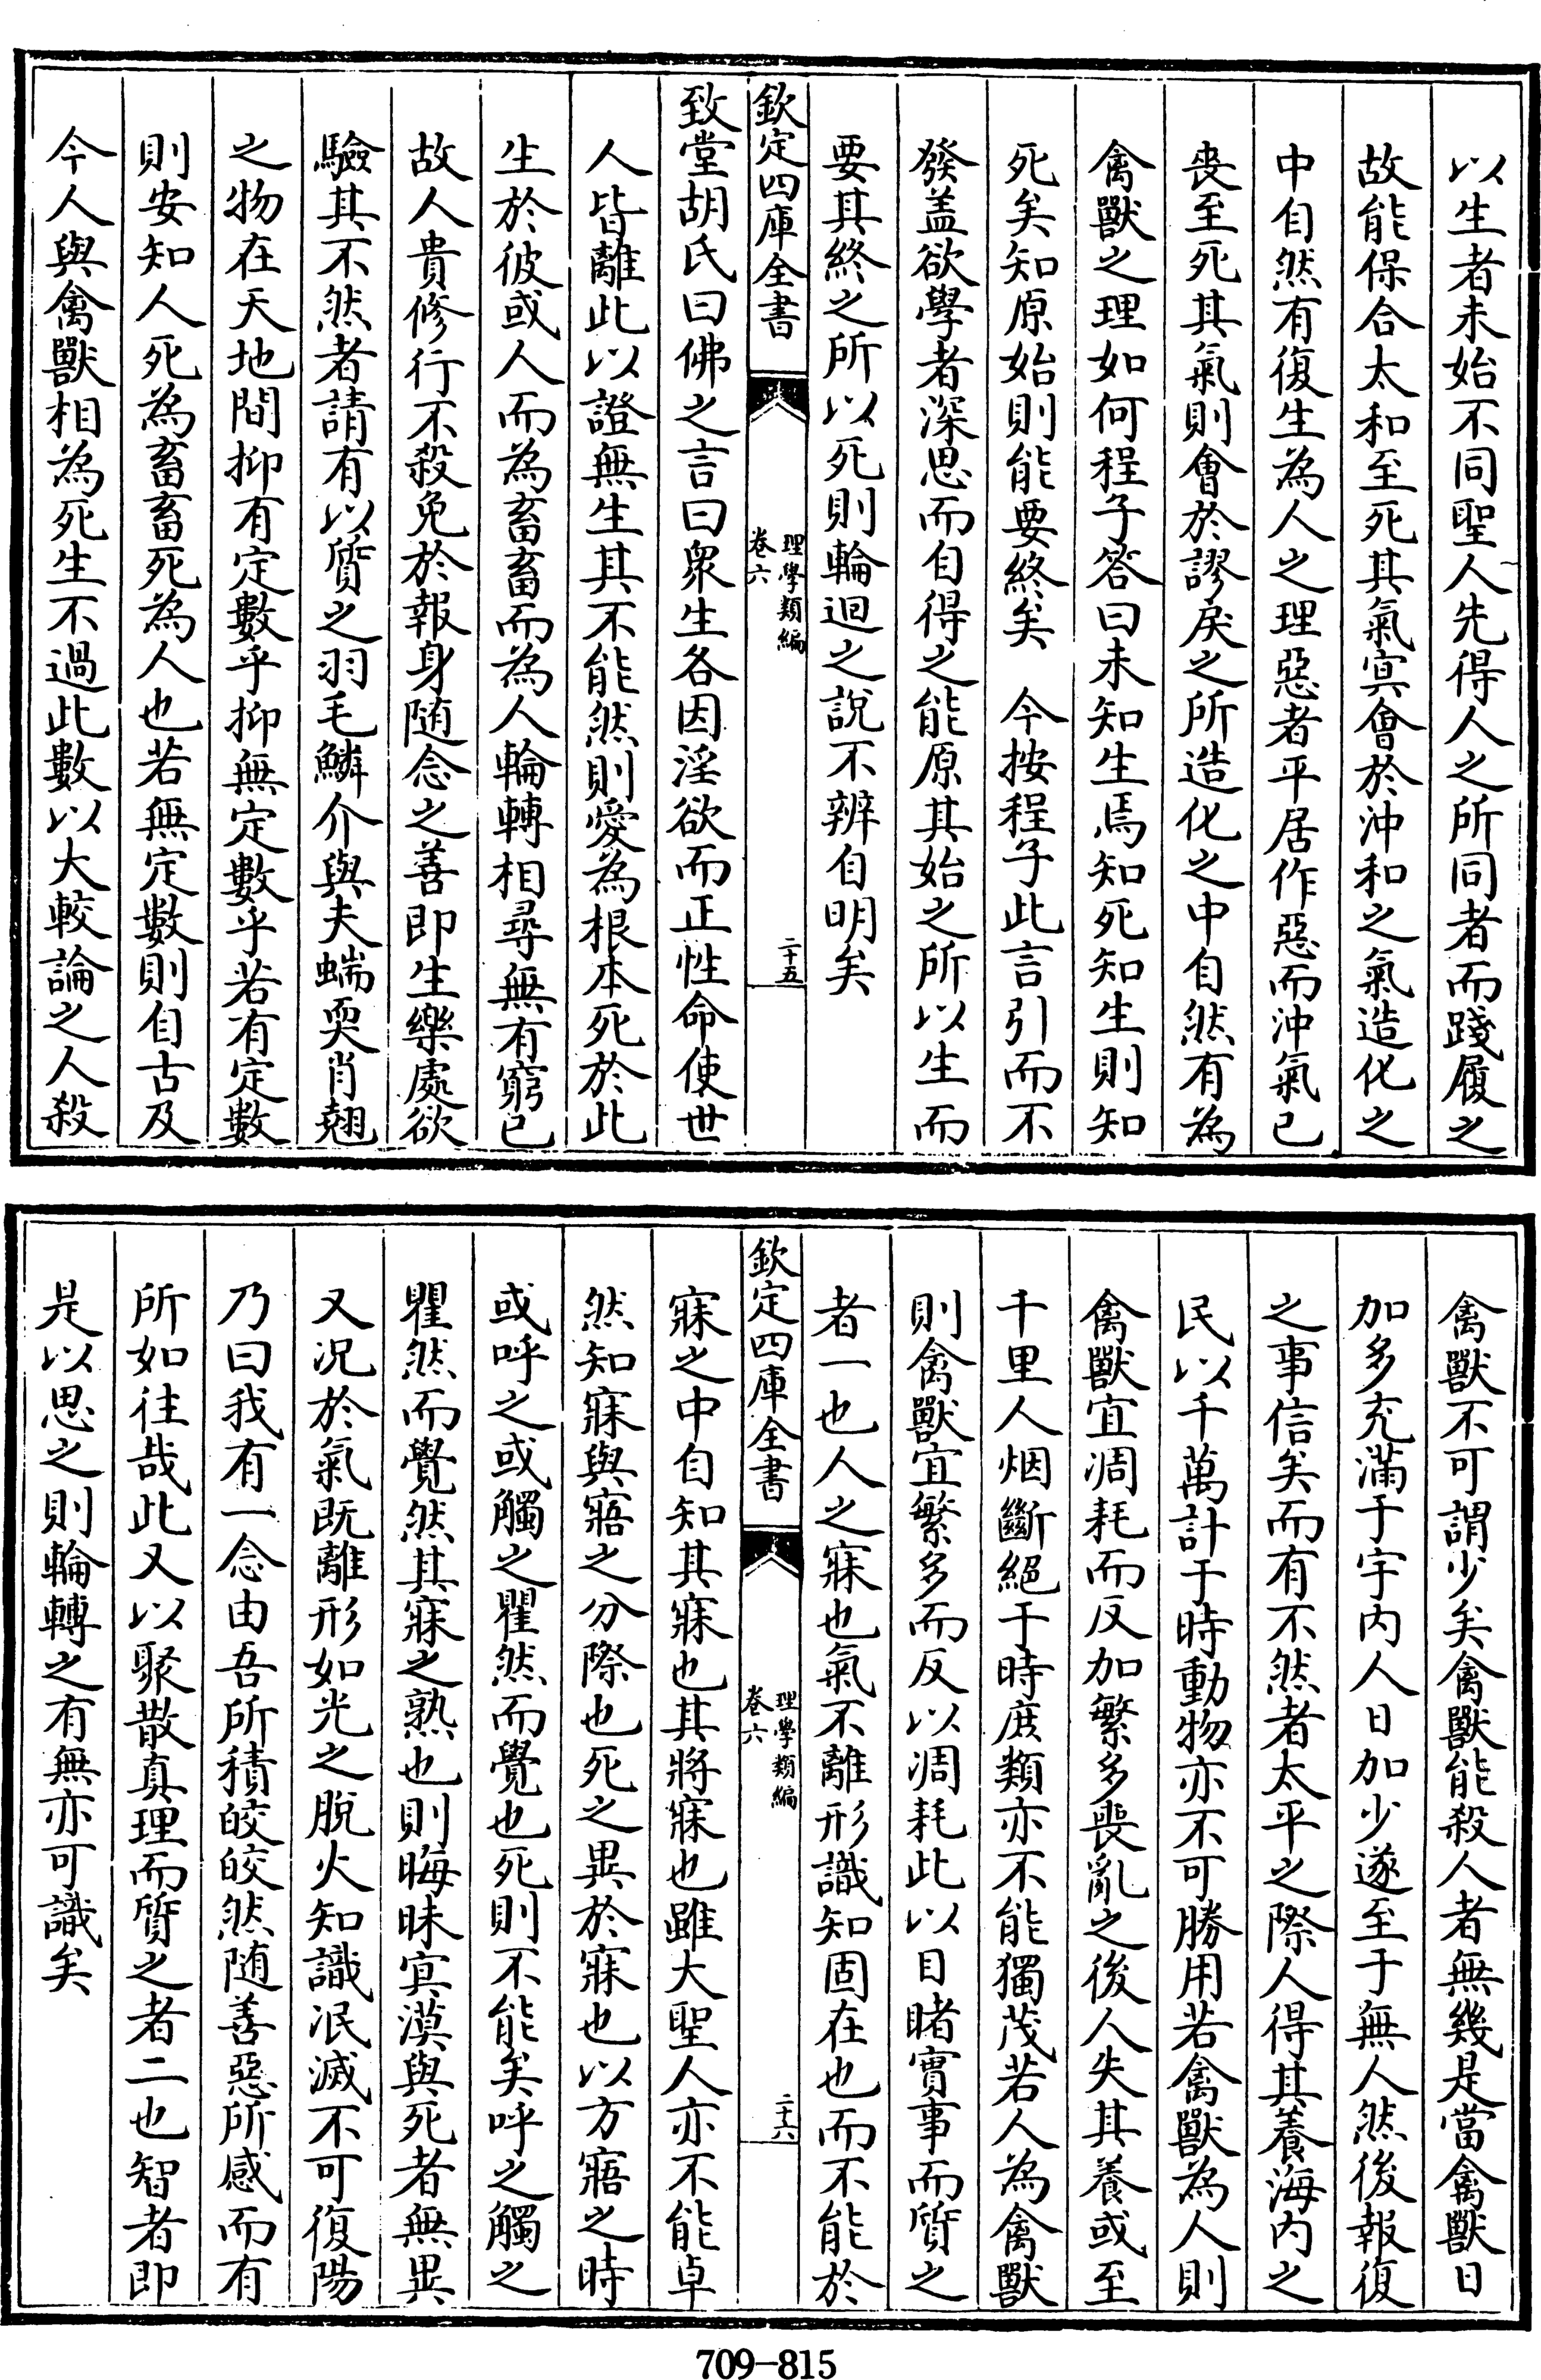 以生者未始不同聖人先得人之所同者而踐履之
故能保合太和至死其氣㝠會於沖和之氣造化之
中自然有復生為人之理惡者平居作惡而沖氣已
喪至死其氣則會於謬戾之所造化之中自然有為
禽獸之理如何程子答曰未知生焉知死知生則知
死矣知原始則能要終矣　今按程子此言引而不
發盖欲學者深思而自得之能原其始之所以生而
要其終之所以死則輪迴之說不辨自明矣
欽定四庫全書
理學類編
卷六
二十五
致堂胡氏曰佛之言曰衆生各因淫欲而正性命使世
人皆離此以證無生其不能然則愛為根本死於此
生於彼或人而為畜畜而為人輪轉相尋無有窮已
故人貴修行不殺免於報身随念之善即生樂處欲
驗其不然者請有以質之羽毛鱗介與夫蝡耎肖翹
之物在天地間抑有定數乎抑無定數乎若有定數
則安知人死為畜畜死為人也若無定數則自古及
今人與禽獸相為死生不過此數以大較論之人殺
禽獸不可謂少矣禽獸能殺人者無幾是當禽獸日
加多充滿于宇内人日加少遂至于無人然後報復
之事信矣而有不然者太平之際人得其養海内之
民以千萬計于時動物亦不可勝用若禽獸為人則
禽獸宜凋耗而反加繁多喪亂之後人失其養或至
千里人烟斷絕于時庶類亦不能獨茂若人為禽獸
則禽獸宜繁多而反以凋耗此以目睹實事而質之
者一也人之寐也氣不離形識知固在也而不能於
欽定四庫全書
理學類編
卷六
二十六
寐之中自知其寐也其將寐也雖大聖人亦不能卓
然知寐與寤之分際也死之異於寐也以方寤之時
或呼之或觸之瞿然而覺也死則不能矣呼之觸之
瞿然而覺然其寐之熟也則晦昧㝠漠與死者無異
又况於氣既離形如光之脫火知識泯滅不可復陽
乃曰我有一念由吾所積皎皎然随善惡所感而有
所如往哉此又以聚散真理而質之者二也智者即
是以思之則輪轉之有無亦可識矣
709-815